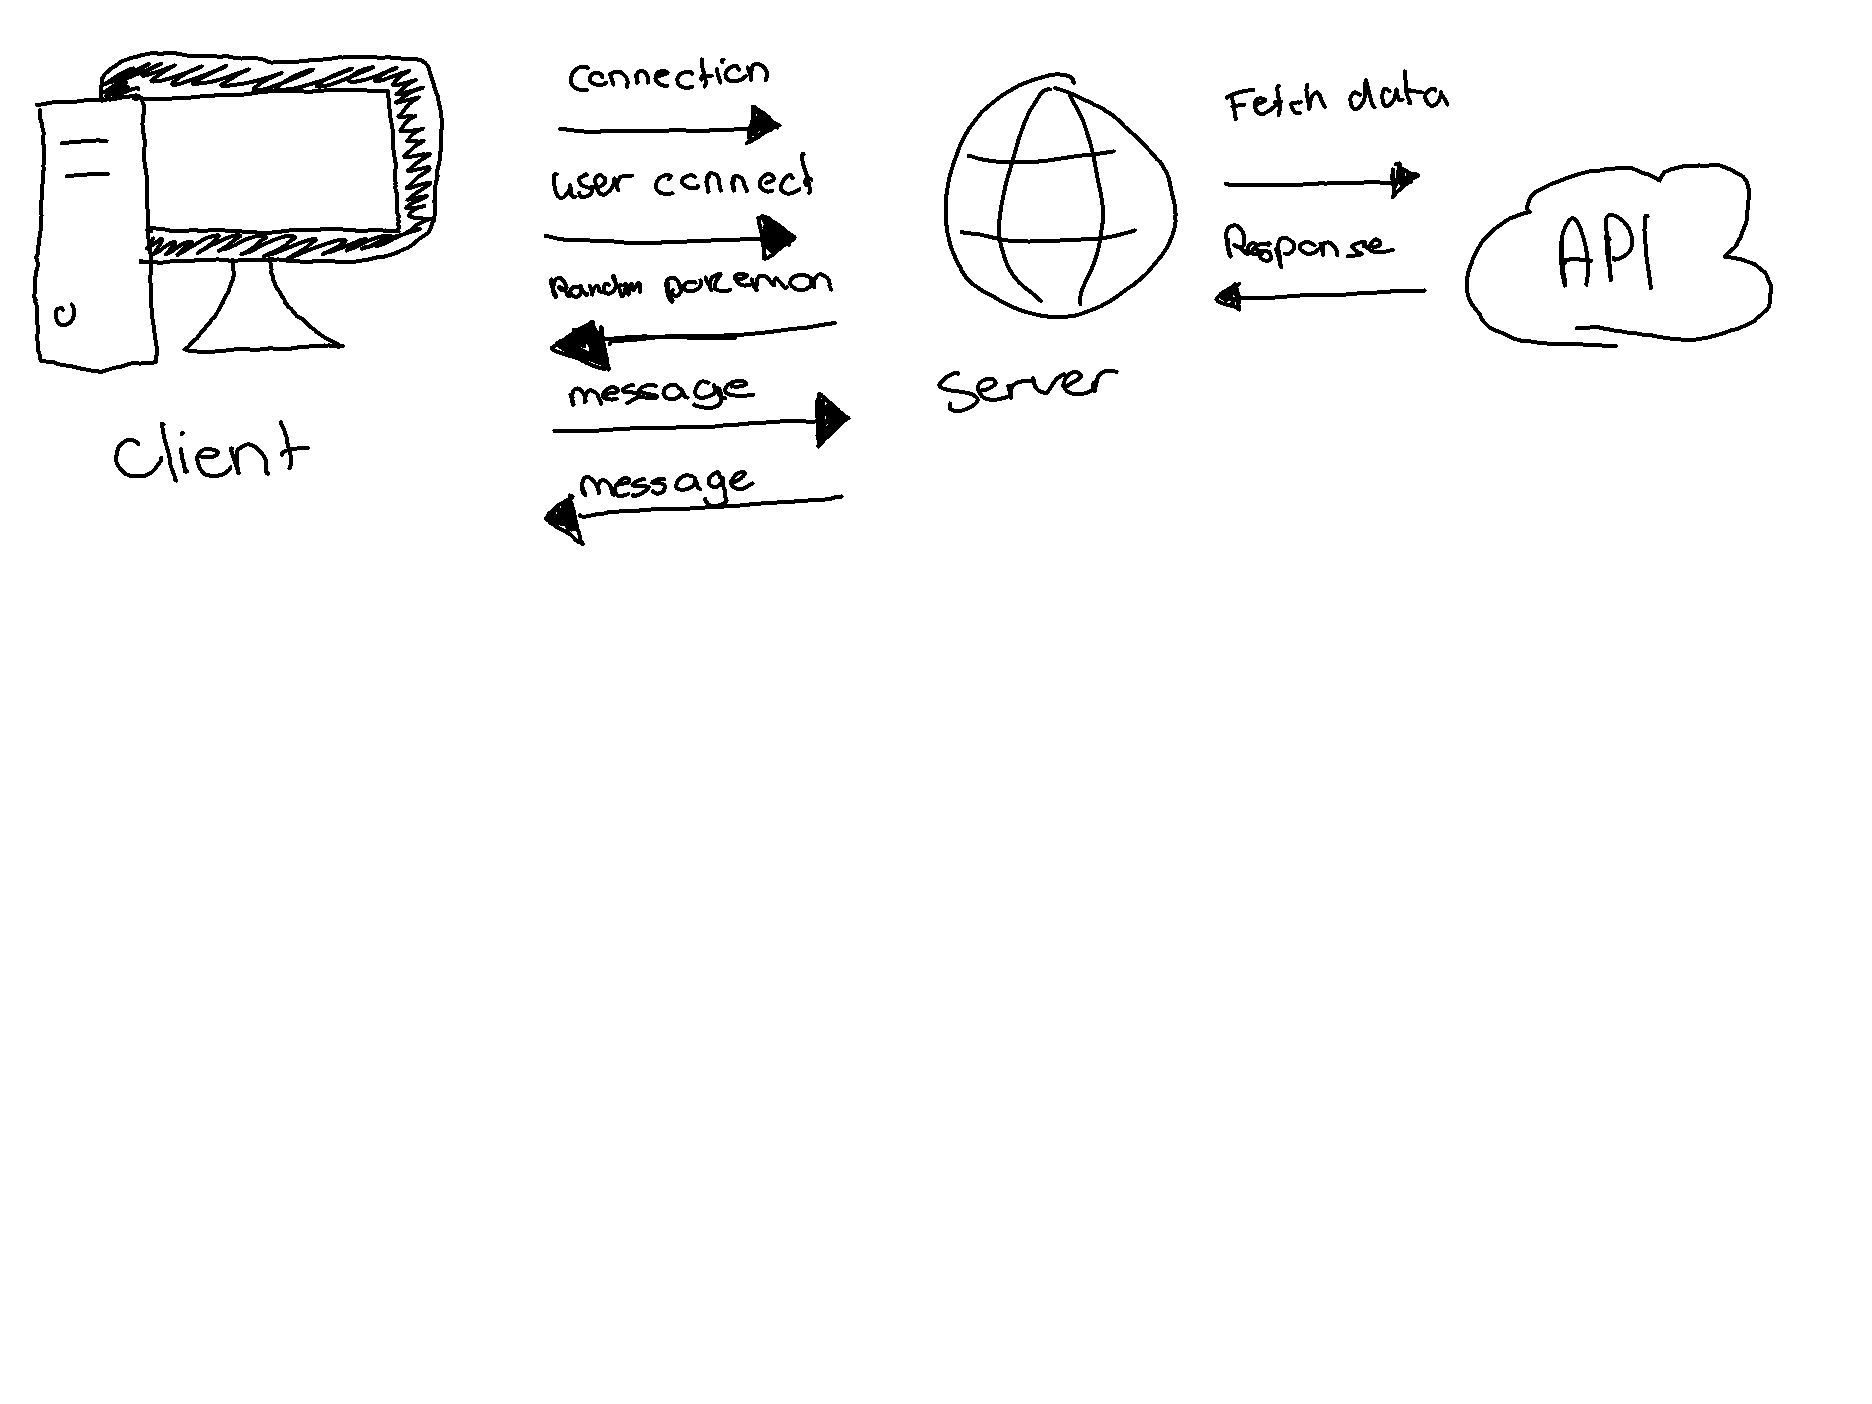 Connection
user connect
Random pokemon
message
message
Client
Server
Fetch data
Response
API